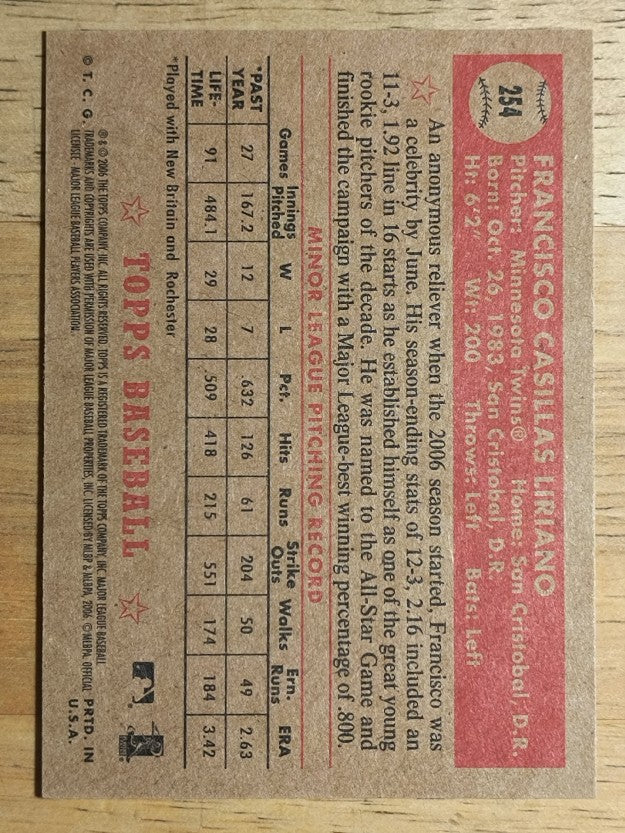 254
FRANCISCO CASILLAS LIRIANO
Pitcher: Minnesota Twins® Home: San Cristobal, D.R.
Born: Oct. 26, 1983, San Cristobal, D.R.
Ht: 6'2" Wt: 200 Throws: Left Bats: Left
An anonymous reliever when the 2006 season started, Francisco was
a celebrity by June. His season-ending stats of 12-3, 2.16 included an
11-3, 1.92 line in 16 starts as he established himself as one of the great young
rookie pitchers of the decade. He was named to the All-Star Game and
finished the campaign with a Major League-best winning percentage of .800.
MINOR LEAGUE PITCHING RECORD
Games Innings Pitched W L Pct. Hits Runs Strike Outs Walks Ern. Runs ERA
*PAST YEAR 27 167.2 12 7 .632 126 61 204 50 49 2.63
LIFE-TIME 91 484.1 29 28 .509 418 215 551 174 184 3.42
*Played with New Britain and Rochester
TOPPS BASEBALL
© T. C. G.
® & © 2006 THE TOPPS COMPANY, INC. ALL RIGHTS RESERVED. TOPPS IS A REGISTERED TRADEMARK OF THE TOPPS COMPANY, INC. MAJOR LEAGUE BASEBALL
TRADEMARKS AND COPYRIGHTS ARE USED WITH PERMISSION OF MAJOR LEAGUE BASEBALL PROPERTIES, INC. LICENSED BY MLBP & MLBPA, 2006 ©MLBPA, OFFICIAL
LICENSEE - MAJOR LEAGUE BASEBALL PLAYERS ASSOCIATION.
PRTD. IN
U.S.A.